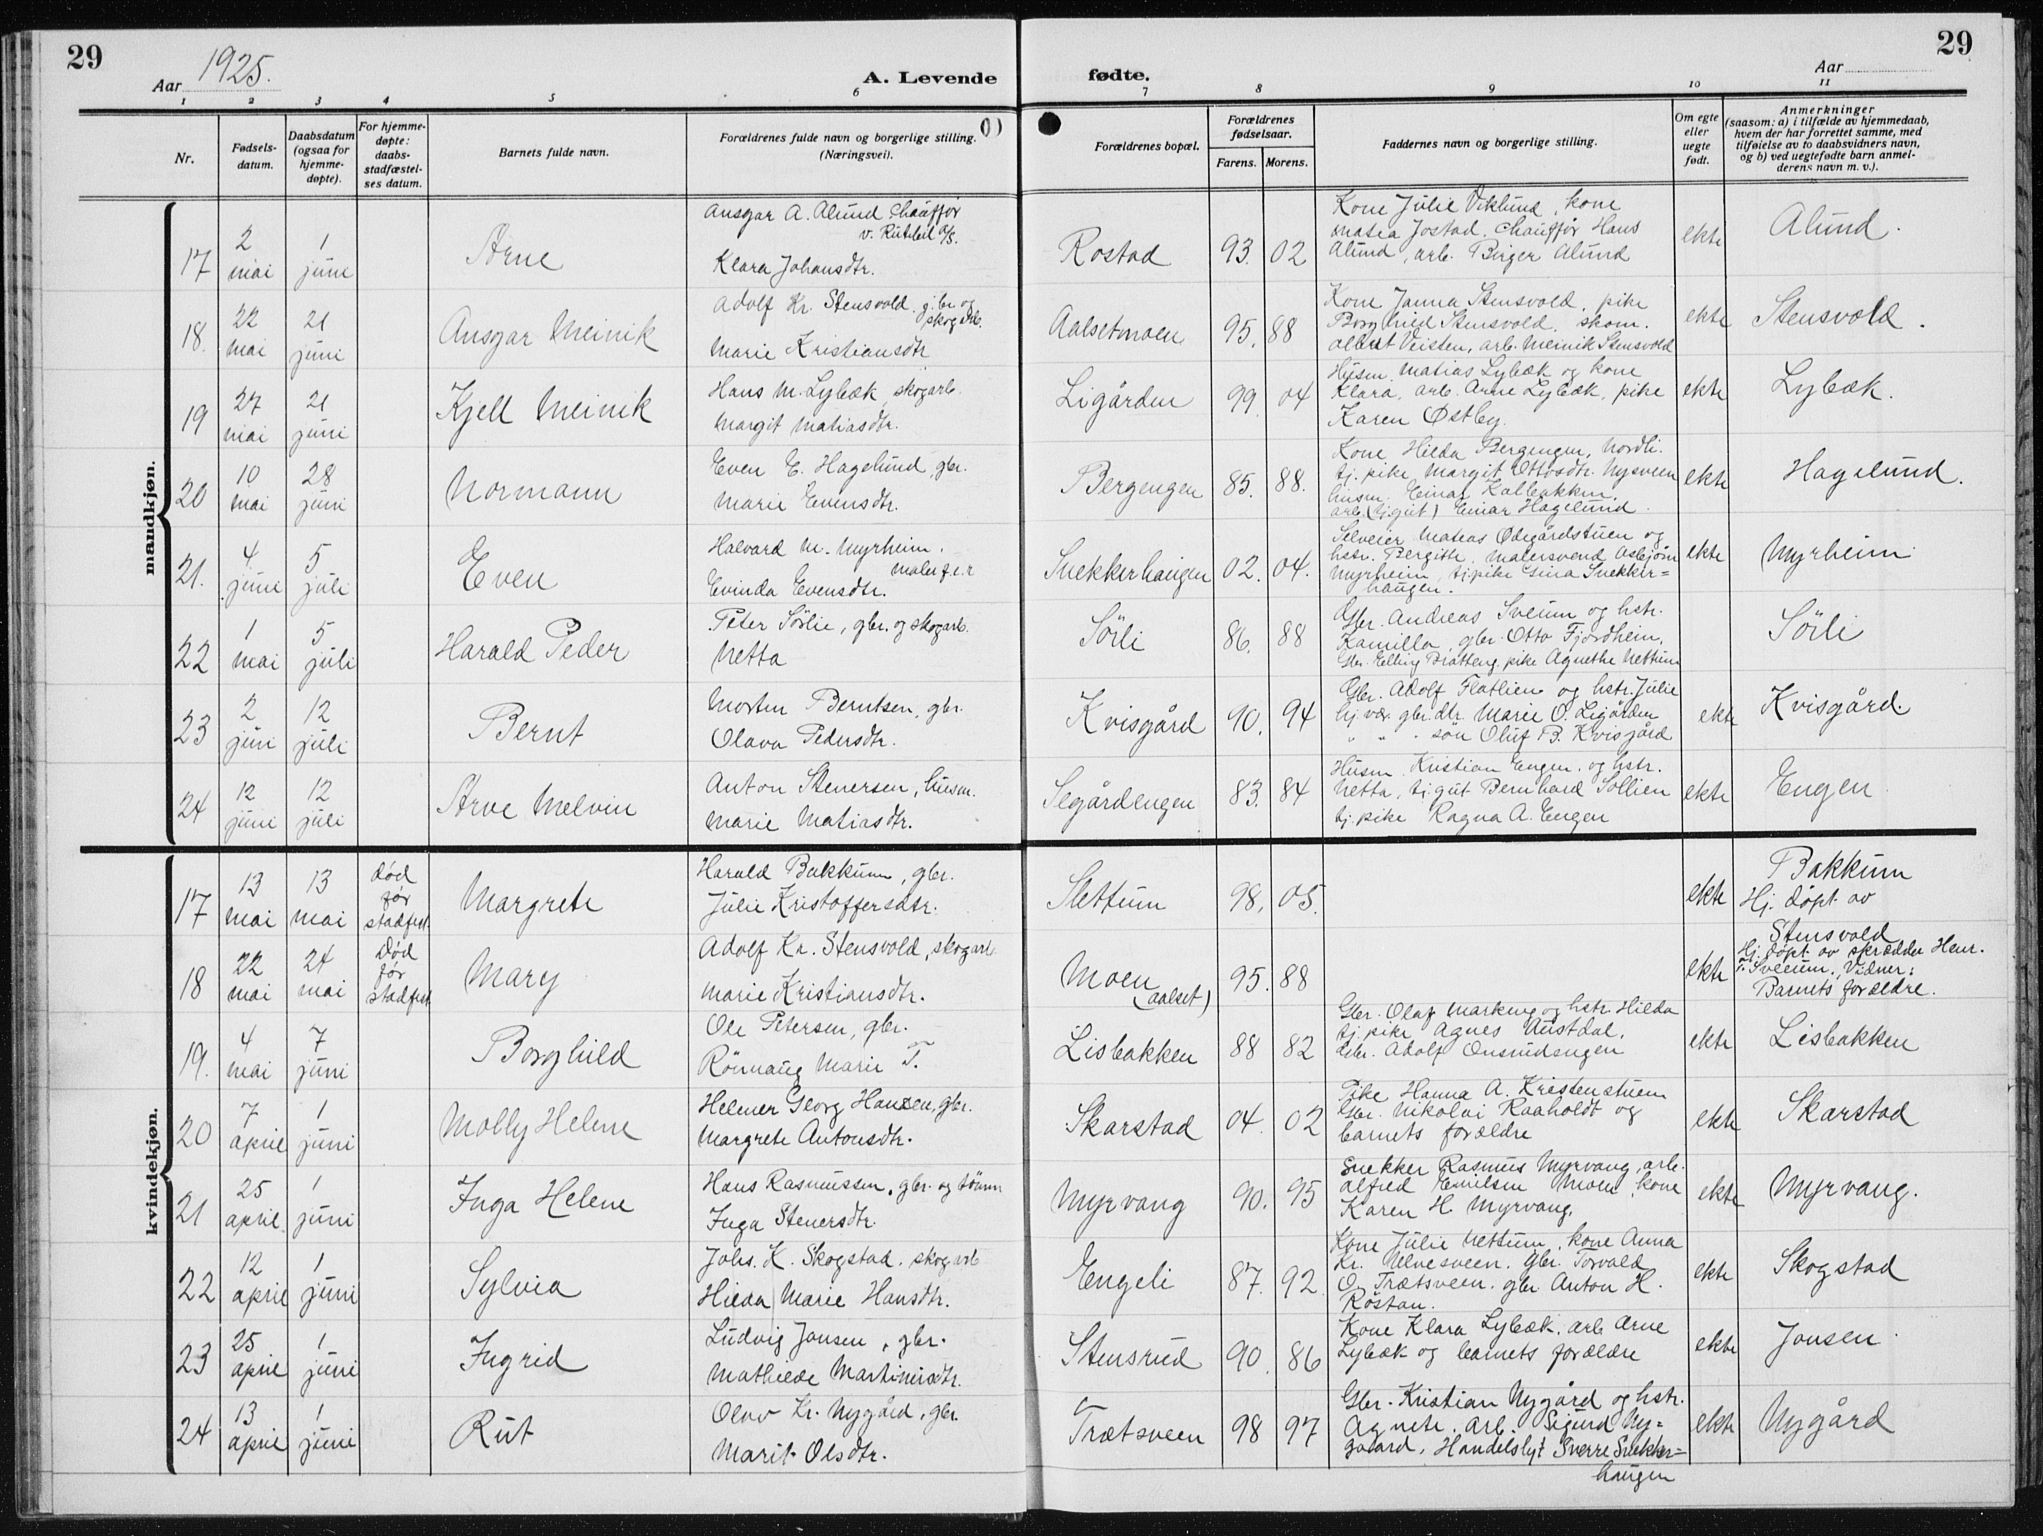 29
Aar 1925.
A. Levende
fødte.
Aar
29
1 2 3 4 5 6 7 8 9 10 11
Nr.
Fødsels-
datum.
Daabsdatum
(ogsaa for
hjemme-
døpte).
For hjemme-
døpte:
daabs-
stadfæstel-
ses datum.
Barnets fulde navn.
Forældrenes fulde navn og borgerlige stilling.
(Næringsvei).
Forældrenes bopæl.
Forældrenes
fødselsaar.
Farens. Morens.
Faddernes navn og borgerlige stilling.
Om egte
eller
uegte
født.
Anmerkninger
(saasom: a) i tilfælde av hjemmedaab,
hvem der har forrettet samme, med
tilføielse av to daabsvidners navn,
og b) ved uegtefødte barn anmel-
derens navn m. v.).
mandkjøn.
17
2
mai
1
juni
Arne
Ansgar A. Alund chauffør
v. Rutebil a/s.
Klara Johansdtr.
Rostad
93. 02
Kone Julie Viklund, kone
Matea Jostad, chauffør Hans
Alund, arb. Birger Alund
ekte
Alund.
18.
22
mai
21
juni
Ansgar Meinik
Adolf Kr. Stensvold, gbr og
skogarb.
Marie Kristiansdtr
Aalsetmoen
95. 88
Kone Janna Stensvold, pike
Borghild Stensvold, skom.
Albert Veisten, arb. Meinik Stensvold
ekte
Stensvold.
19
27
mai
21
juni
Kjell Meinik
Hans M. Lybæk, skogarb.
Margit Matiasdtr.
Ligården
99. 04
Husm. Matias Lybæk og kone
Klara, arb. Arne Lybæk, pike
Karen Østby.
ekte
Lybæk.
20
10
mai
28
juni
Normann
Even E. Hagelund, gbr.
Marie Evensdtr.
Bergengen
85. 88.
Kone Hilda Bergengen, Nordli.
tj. pike Margit Ottosdtr. Nysveen
husm. Einar Kalbakken,
arb. (tj. gut) Einar Hagelund.
ekte
Hagelund.
21.
4
juni
5
juli
Even
Halvard M. Myrheim.
maler f.e.r
Evinda Evensdtr.
Snekkerhaugen
02. 04.
Selveier Mateas Ødegårdstuen og
hstr. Bergitte, malersvend Asbjørn
Myrheim, tj. pike Gina Snekker=
haugen.
ekte
Myrheim
22
1
mai
5
juli
Harald Peder
Peter Sørlie, gbr. og skogarb.
Netta
Sörli
86. 88
Gbr. Andreas Sveum og hstr.
Kamilla, gbr. Otto Fjordheim,
Gbr. Elling Bratteng, pike Agnethe Nettum
Sörli
23
2
juni
12
juli
Bernt
Morten Berntsen, gbr.
Olava Pedersdtr.
Kvisgård
90. 94
Gbr. Adolf Flatlien og hstr. Julie
hj. vær. gbr. dtr. Marie O. Ligården
" " " søn Oluf B. Kvisgård
ekte
Kvisgård.
24
12
juni
12
juli
Arve Melvin
Anton Stenersen, husm.
Marie Matiasdtr.
Segårdengen
83. 84
Husm. Kristian Engen og hstr.
Netta, tj. gut Bernhard Sollien
tj. pike Ragna A. Engen
ekte
Engen
kvindekjøn.
17
13
mai
13
mai
død
før
stadfest.
Margrete
Harald Bakkum, gbr.
Julie Kristoffersdtr.
Slettum
98. 05.
ekte
Bakkum
Hj. døpt av
18
22
mai
24
mai
Død
før
stadfest
Mary
Adolf Kr. Stensvold, skogarb.
Marie Kristiansdtr.
Moen
(Aalset)
95. 88
ekte
Stensvold
Hj. døpt av skrædder Henr.
T. Sveum. Vidner:
Barnets forældre.
19.
4
mai
7
juni
Borghild
Ole Petersen, gbr.
Rönnaug Marie T.
Lisbakken
88 82
Gbr. Olaf Markeng og hstr. Hilda
tj. pike Agnes Austdal,
Gbr. Adolf Onsrudengen
ekte
Lisbakken
20
7
april
1
juni
Molly Helene
Helmer Georg Hansen, gbr.
Margrete Antonsdtr.
Skarstad
04. 02
Pike Hanna A. Kristenstuen
Gbr. Nikolai Raaholdt og
barnets forældre
ekte
Skarstad
21
25
april
1
juni
Inga Helene
Hans Rasmussen, gbr. og tömm
Inga Stenersdtr.
Myrvang
90. 95
Snekker Rasmus Myrvang, arb.
Alfred Emilsen Moen, kone
Karen H. Myrvang.
ekte
Myrvang.
22
12
april
1
juni
Sylvia
Johs. K. Skogstad, skogarb
Hilda Marie Hansdtr.
Engeli
87. 92
Kone Julie Nettum, kone Anna
Kr. Ulvesveen. Gbr. Torvald
O. Trætsveen. gbr Anton H.
Röstan.
ekte
Skogstad
23
25
april
1
juni
Ingrid
Ludvig Jonsen, gbr.
Mathilde Martinusdtr.
Stensrud
90. 86
Kone Klara Lybæk, arb Arne
Lybæk og barnets forældre
ekte
Jonsen
24
13
april
1
juni
Rut
Olav Kr. Nygård, gbr.
Marit Olsdtr.
Trætsveen
98 97
Gbr. Kristian Nygård og hstr.
Agnete, arb. Sigurd Ny=
gaard, Handelsbyt Sverre Snekker=
haugen
ekte
Nygård